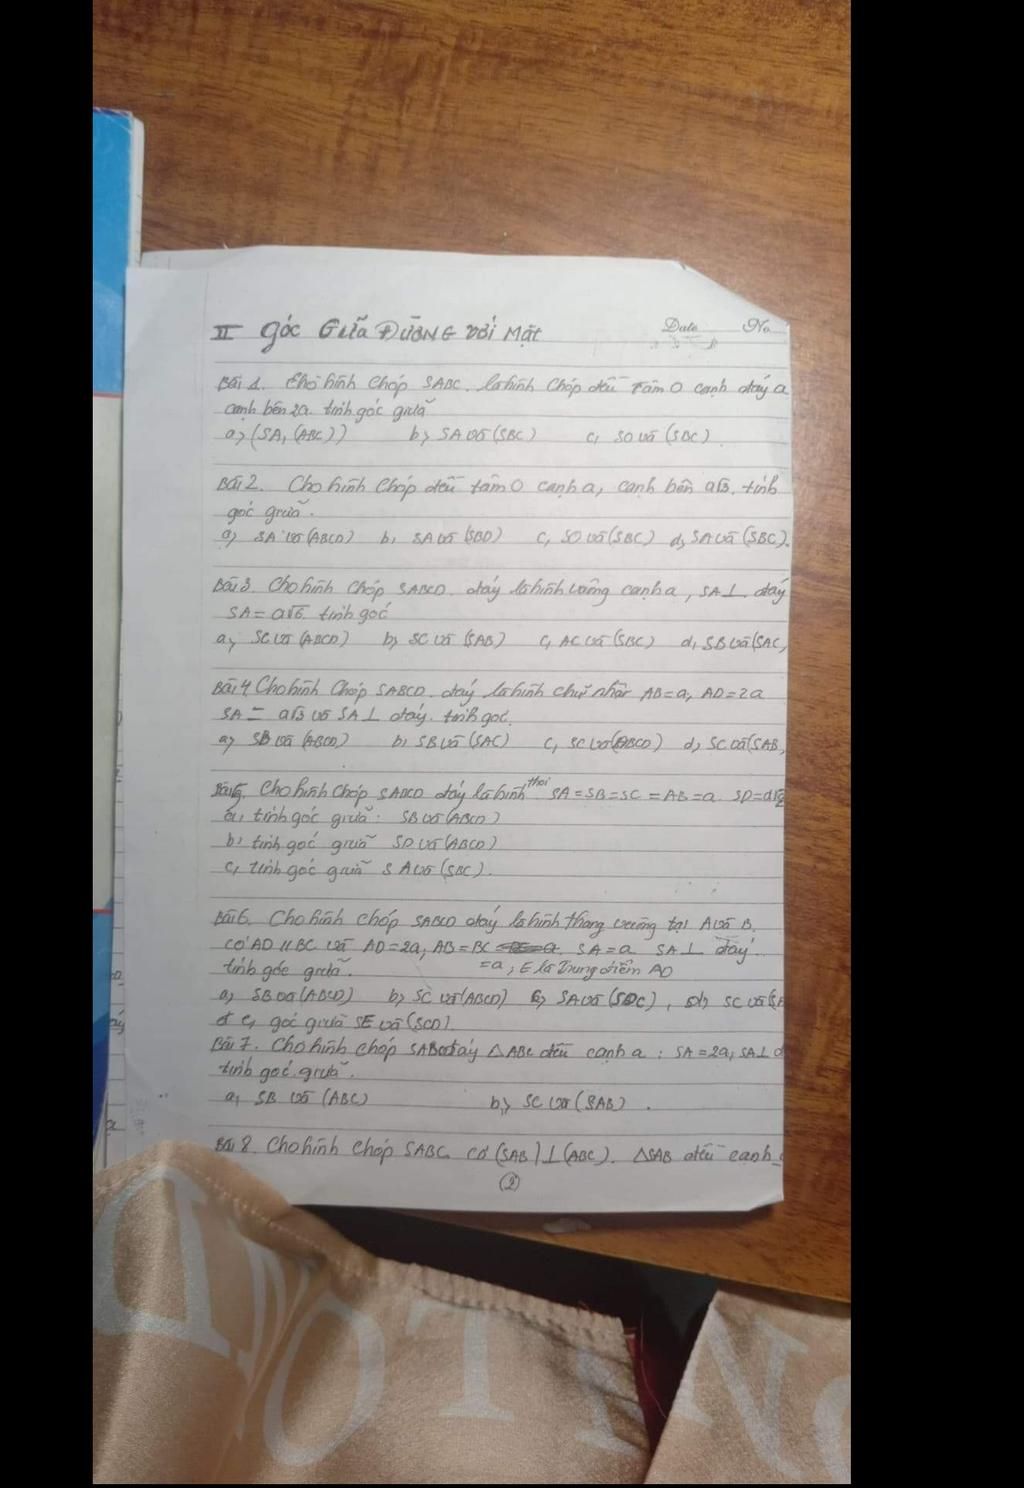 II Góc Giữa ĐƯỜNG với Mặt
Date No
Bài 1. Cho hình chóp SABC. là hình chóp đều tâm O cạnh đáy a
cạnh bên 2a. tính góc giữa
a, (SA, (ABC)) b, SA và (SBC) c, SO và (SBC)
Bài 2. Cho hình chóp đều tâm O cạnh a, cạnh bên a√3. tính
góc giữa.
a, SA và (ABCD) b, SA và (SBD) c, SO và (SBC) d, SA và (SBC).
Bài 3. Cho hình chóp SABCD. đáy là hình vuông cạnh a, SA⊥ đáy
SA = a√6. tính góc
a, SC và (ABCD) b, SC và (SAB) c, AC và (SBC) d, SB và (SAC,
Bài 4. Cho hình chóp SABCD. đáy là hình chữ nhật AB=a, AD=2a
SA = a√3 và SA⊥ đáy. tính góc.
a, SB và (ABCD) b, SB và (SAC) c, SC và (ABCD) d, SC và (SAB,
Bài 5. Cho hình chóp SABCD đáy là hình thoi SA=SB=SC=AB=a. SD=a√2
a, tính góc giữa: SB và (ABCD)
b, tính góc giữa SD và (ABCD)
c, tính góc giữa SA và (SBC).
Bài 6. Cho hình chóp SABCD đáy là hình thang vuông tại A và B.
có AD // BC và AD=2a, AB=BC SA=a SA⊥ đáy.
tính góc giữa. =a, E là Trung điểm AD
a, SB và (ABCD) b, SC và (ABCD) SA và (SDC), d, SC và
e, góc giữa SE và (SCD).
Bài 7. Cho hình chóp đáy △ABC đều cạnh a: SA=2a, SA⊥ đ
tính góc giữa.
a, SB và (ABC) b, SC và (SAB).
Bài 8. Cho hình chóp SABC. có (SAB)⊥(ABC). △SAB đều cạnh
(2)